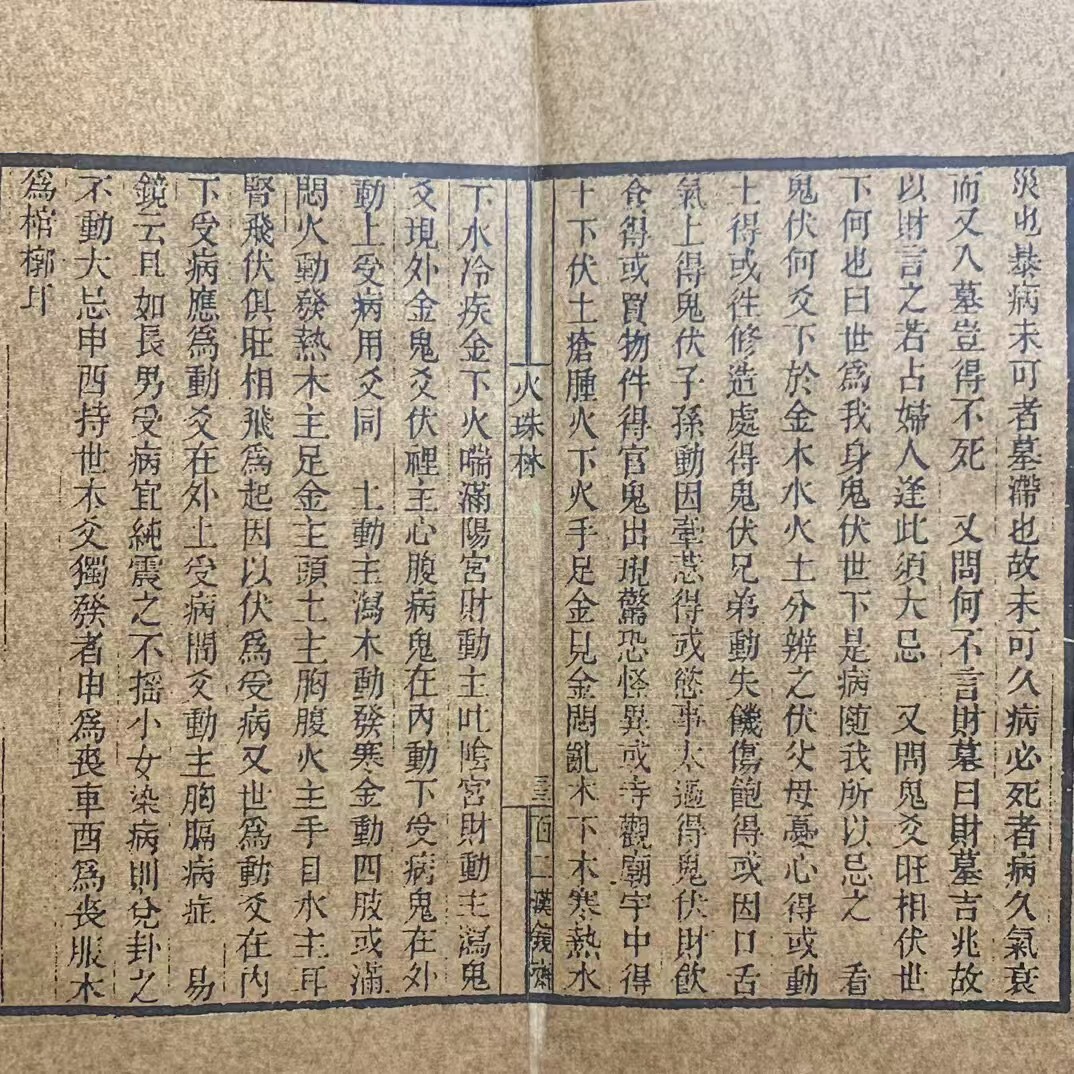 災也暴病未可者墓滯也故未可久病必死者病久氣衰
而又入墓豈得不死　又問何不言財墓曰財墓吉兆故
以財言之若占婦人逢此須大忌　又問鬼爻旺相伏世
下何也曰世爲我身鬼伏世下是病随我所以忌之　看
鬼伏何爻下於金木水火土分辨之伏父母憂心得或動
土得或往修造處得鬼伏兄弟動失饑傷飽得或因口舌
氣上得鬼伏子孫動因牽惹得或慾事太過得鬼伏財飲
食得或買物件得官鬼出現驚恐怪異或寺觀廟宇中得
土下伏土瘡腫火下火手足金見金悶亂木下木寒熱水
火珠林
三
百二漢鏡齋
下水冷疾金下火喘滿陽宮財動主吐陰宮財動主瀉鬼
爻現外金鬼爻伏裡主心腹病鬼在內動下受病鬼在外
動上受病用爻同　土動主瀉木動發寒金動四肢或滿
悶火動發熱木主足金主頭土主胸腹火主手目水主耳
腎飛伏俱旺相飛爲起因以伏爲受病又世爲動爻在內
下受病應爲動爻在外上受病間爻動主胸膈病症　易
鏡云且如長男受病宜純震之不搖小女染病則兌卦之
不動大忌申酉持世木爻獨發者申爲喪車酉爲喪服木
爲棺槨耳